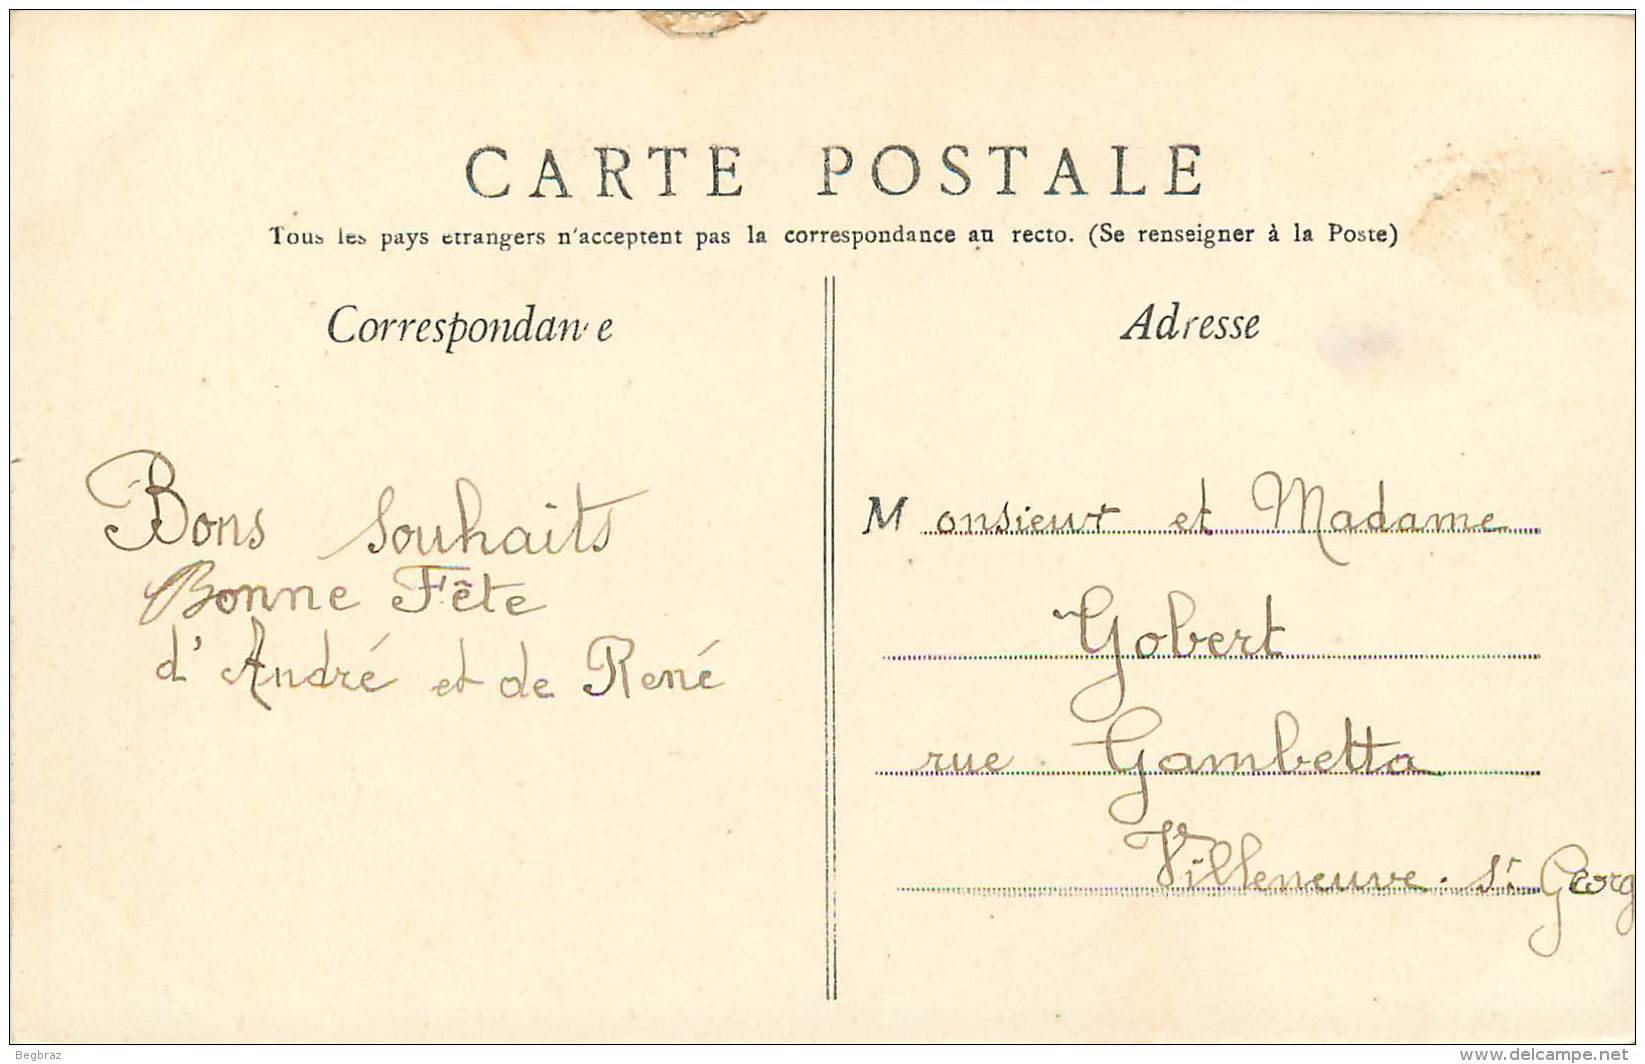 CARTE POSTALE
Tous les pays étrangers n'acceptent pas la correspondance au recto. (Se renseigner à la Poste)
Correspondance
Adresse
Bons souhaits
Bonne Fête
d'André et de René
Monsieur et Madame
Gobert
rue Gambetta
Villeneuve-St Georg
Begbraz
www.delcampe.net